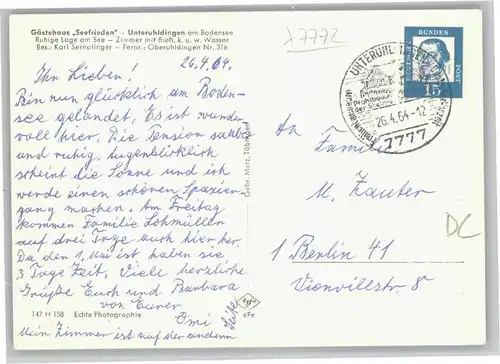 Gästehaus „Seefrieden" – Unteruhldingen am Bodensee
Ruhige Lage am See – Zimmer mit fließ. k. u. w. Wasser
Bes.: Karl Sernatinger – Fernr.: Oberuhldingen Nr. 316
26.4.64.
Ihr Lieben!
Bin nun glücklich am Boden-
see gelandet. Es ist wunder
voll hier. Die Pension sauber
und ruhig. Augenblicklich
scheint die Sonne und ich
werde einen schönen Spazier-
gang machen. Am Freitag
kommen Familie Lohmüller
auf drei Tage auch hier her.
Da den 1. Mai ist haben sie
3 Tage Zeit. Viele herzliche
Grüße Euch und Barbara
von Eurer
Omi
Mein Zimmer ist auf der andern
Seite
147 H 158 Echte Photographie
eFe
Gebr. Metz, Tübingen
x7772
DEUTSCHE
BUNDES
POST
15
UNTERUHLDINGEN
26.4.64-12
7777
An Familie
M. Zauter
1 Berlin 41
Vionvillestr. 8
DC